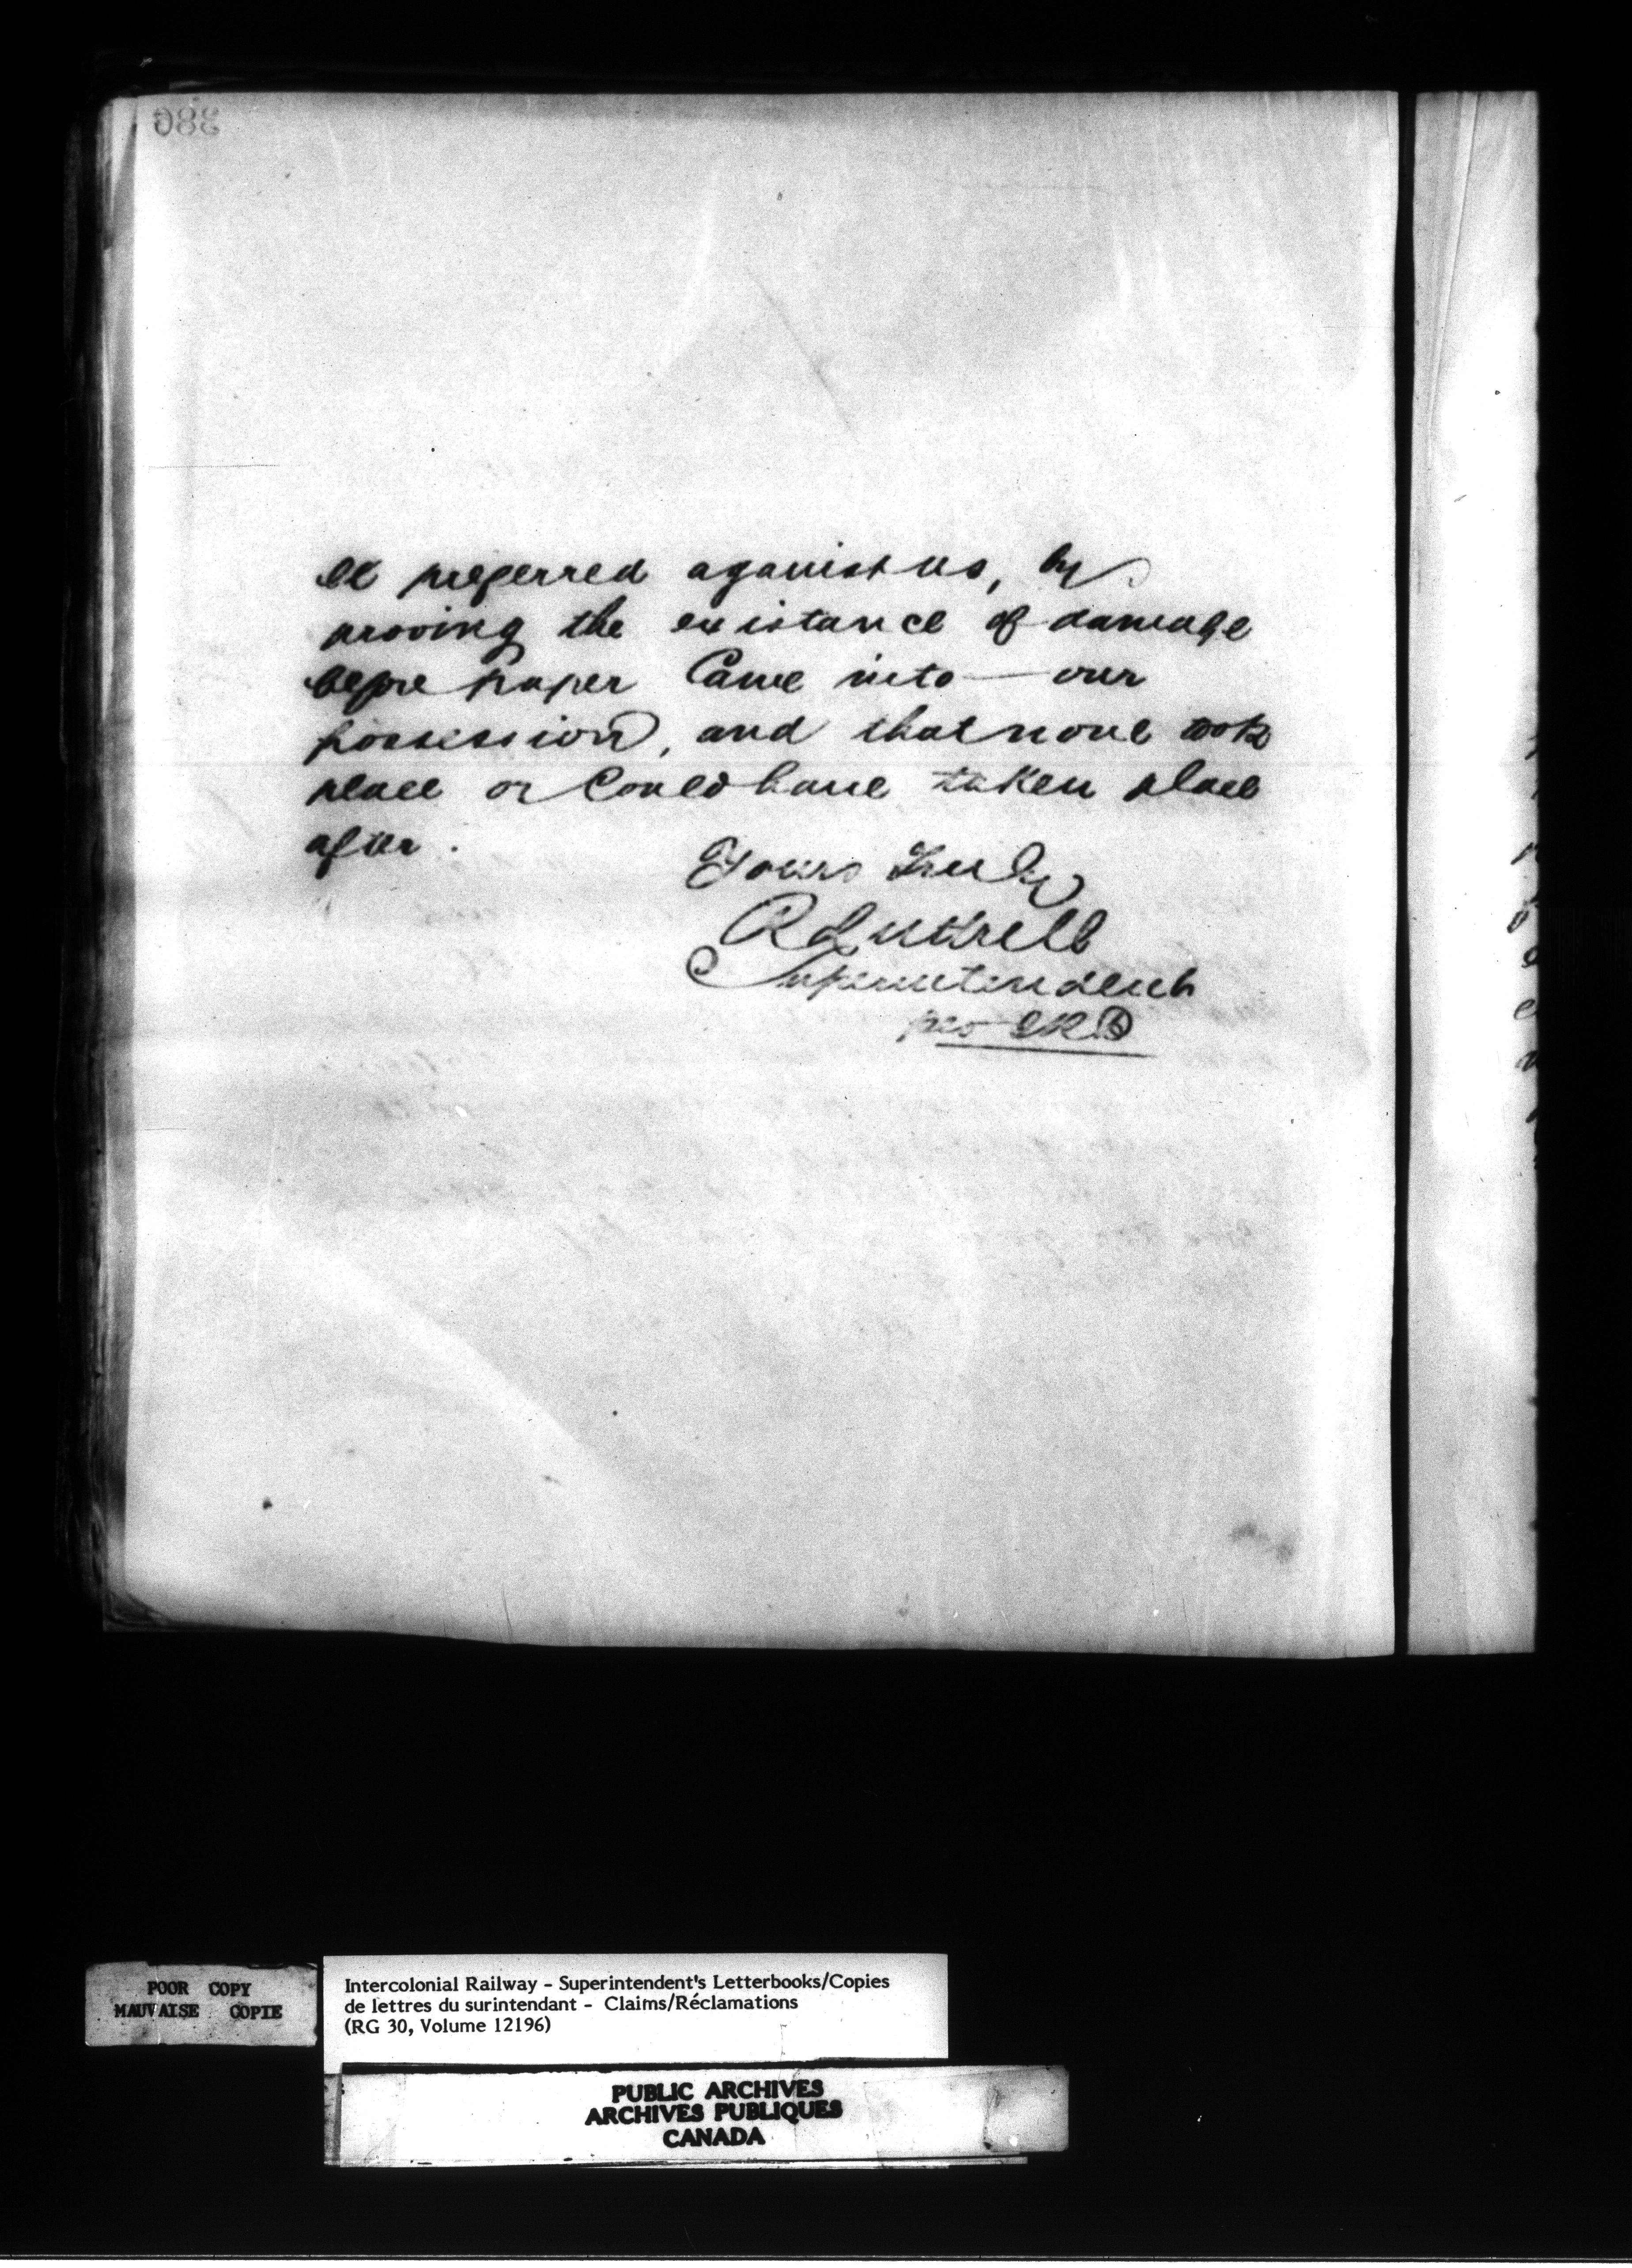 386
be preferred against us, by
proving the existance of damage
before paper Came into our
possession, and that none took
place or Could have taken place
after.
Yours Truly
R Luttrell
Superintendent
per
POOR COPY
MAUVAISE COPIE
Intercolonial Railway - Superintendent's Letterbooks/Copies
de lettres du surintendant - Claims/Réclamations
(RG 30, Volume 12196)
PUBLIC ARCHIVES
ARCHIVES PUBLIQUES
CANADA